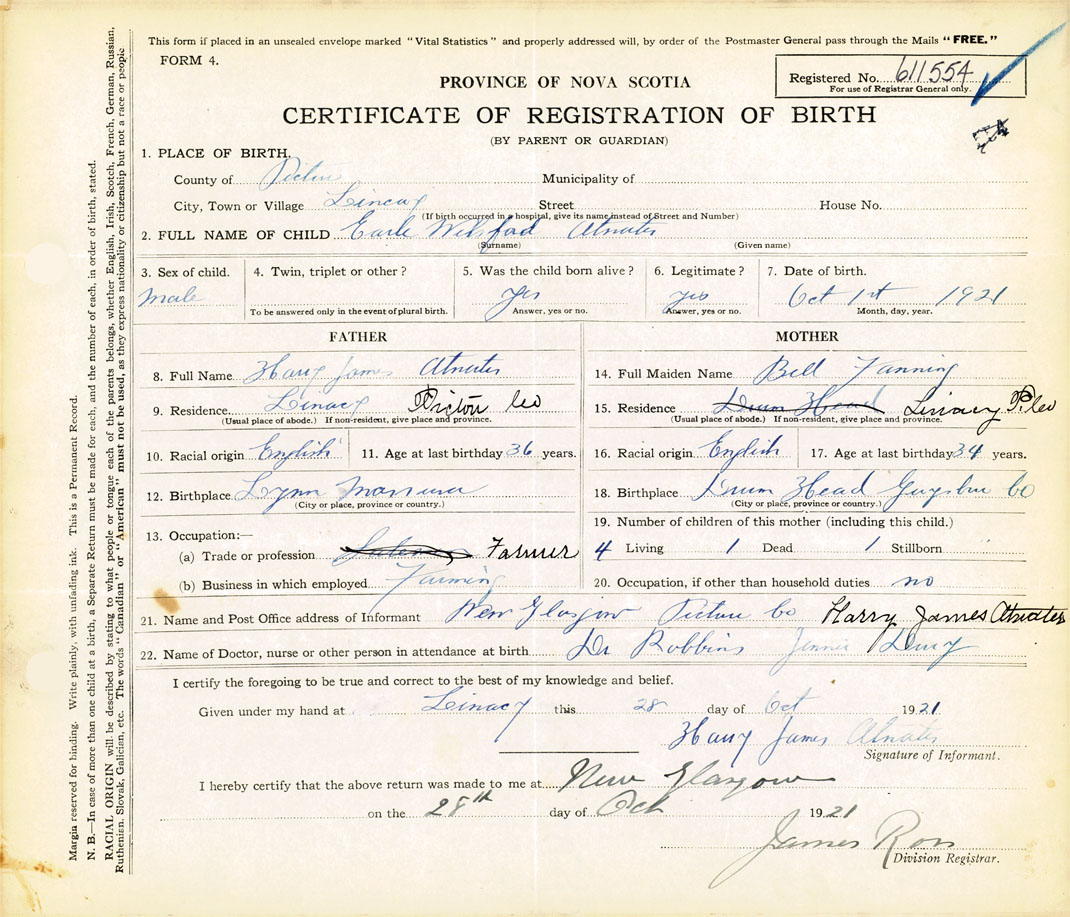 This form if placed in an unsealed envelope marked "Vital Statistics" and properly addressed will, by order of the Postmaster General pass through the Mails "FREE."
FORM 4.
Registered No. 611554
For use of Registrar General only.
PROVINCE OF NOVA SCOTIA
CERTIFICATE OF REGISTRATION OF BIRTH
(BY PARENT OR GUARDIAN)
1. PLACE OF BIRTH
County of Pictou Municipality of
City, Town or Village Linacy Street House No.
(If birth occurred in a hospital, give its name instead of Street and Number)
2. FULL NAME OF CHILD Earle Welsford Atwater
(Surname) (Given name)
3. Sex of child. 4. Twin, triplet or other? 5. Was the child born alive? 6. Legitimate? 7. Date of birth.
Male yes yes Oct 1st 1921
To be answered only in the event of plural birth. Answer, yes or no. Answer, yes or no. Month, day, year.
FATHER
8. Full Name Harry James Atwater
9. Residence Linacy Picton Co
(Usual place of abode.) If non-resident, give place and province.
10. Racial origin English 11. Age at last birthday 36 years.
12. Birthplace Lynn
(City or place, province or country.)
13. Occupation:—
(a) Trade or profession Farmer
(b) Business in which employed Farming
MOTHER
14. Full Maiden Name Bell Fanning
15. Residence Drum Head Linacy P. Co
(Usual place of abode.) If non-resident, give place and province.
16. Racial origin English 17. Age at last birthday 34 years.
18. Birthplace Drum Head Guysbro Co
(City or place, province or country.)
19. Number of children of this mother (including this child.)
4 Living 1 Dead 1 Stillborn
20. Occupation, if other than household duties no
21. Name and Post Office address of Informant New Glasgow Pictou Co Harry James Atwater
22. Name of Doctor, nurse or other person in attendance at birth Dr Robbins Jennie
I certify the foregoing to be true and correct to the best of my knowledge and belief.
Given under my hand at Linacy this 28 day of Oct 1921
Harry James Atwater
Signature of Informant.
I hereby certify that the above return was made to me at New Glasgow
on the 28th day of Oct 1921
James Ross
Division Registrar.
Margin reserved for binding. Write plainly, with unfading ink. This is a Permanent Record.
N. B.—In case of more than one child at a birth, a Separate Return must be made for each, and the number of each, in order of birth, stated.
RACIAL ORIGIN will be described by stating to what people or tongue each of the parents belongs, whether English, Irish, Scotch, French, German, Russian,
Ruthenian, Slovak, Galician, etc. The words "Canadian" or "American" must not be used, as they express nationality or citizenship but not a race or people